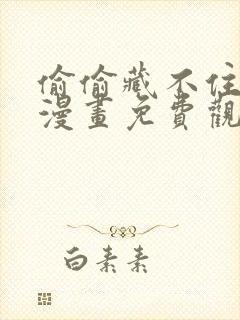 偷偷藏不住
漫畫免費觀
白素素